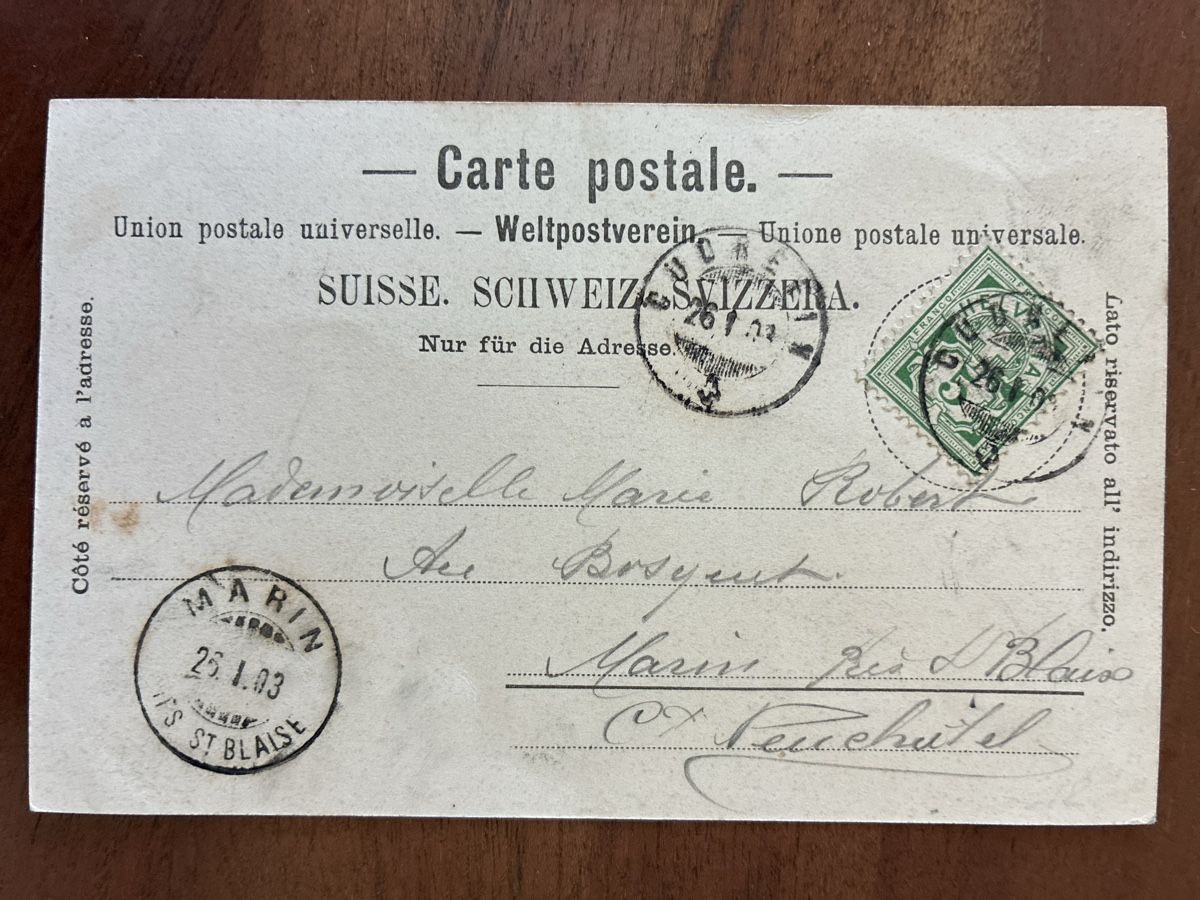 — Carte postale. —
Union postale universelle. — Weltpostverein. — Unione postale universale.
SUISSE. SCHWEIZ. SVIZZERA.
Nur für die Adresse.
Côté réservé à l'adresse.
Lato riservato all' indirizzo.
CUDREFIN
26 I 03
FRANCO
HELVETIA
5
CUDREFIN
26 I 03
Mademoiselle Marie Robert
Au Bosquet
Marin près St Blaise
Ct Neuchâtel
MARIN
26.I.03
ST BLAISE